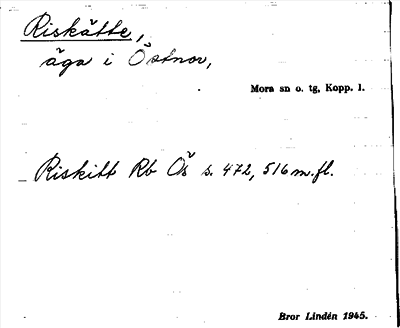 Riskätte,
äga i Östnor,
Mora sn o. tg, Kopp. l.
Riskitt Rb Ös s. 472, 516 m.fl.
Bror Lindén 1945.